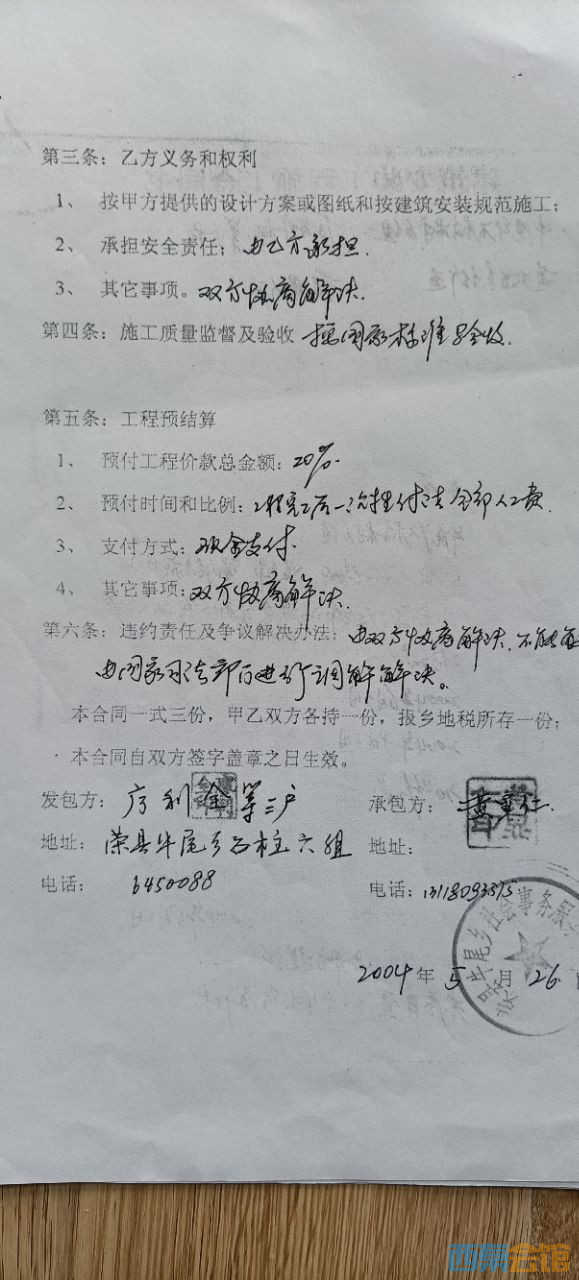 第三条：乙方义务和权利
1、 按甲方提供的设计方案或图纸和按建筑安装规范施工；
2、 承担安全责任；由乙方承担.
3、 其它事项。双方协商解决.
第四条：施工质量监督及验收 按国家标准验收.
第五条：工程预结算
1、 预付工程价款总金额：20%.
2、 预付时间和比例：工程完工后一次性付清全部人工费.
3、 支付方式：现金支付.
4、 其它事项：双方协商解决.
第六条：违约责任及争议解决办法：由双方协商解决.不能
由国家司法部门进行调解解决。
本合同一式三份，甲乙双方各持一份，报乡地税所存一份；
本合同自双方签字盖章之日生效。
发包方： 利金等三户 承包方：
地址：荣县牛尾乡石柱六组 地址：
电话： 6450088 电话：
牛尾乡社会事务服
2004年5月26
西祠会馆